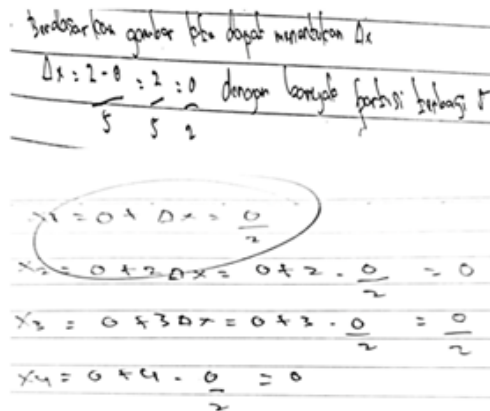 Berdasarkan gambar kita dapat menentukan Δx
Δx = 2-0/5 = 2/5 = 0/2 dengan banyak partisi berbagi 5
x1 = 0 + Δx = 0/2
x2 = 0 + 2 Δx = 0 + 2 . 0/2 = 0
x3 = 0 + 3 Δx = 0 + 3 . 0/2 = 0/2
x4 = 0 + 4 . 0/2 = 0